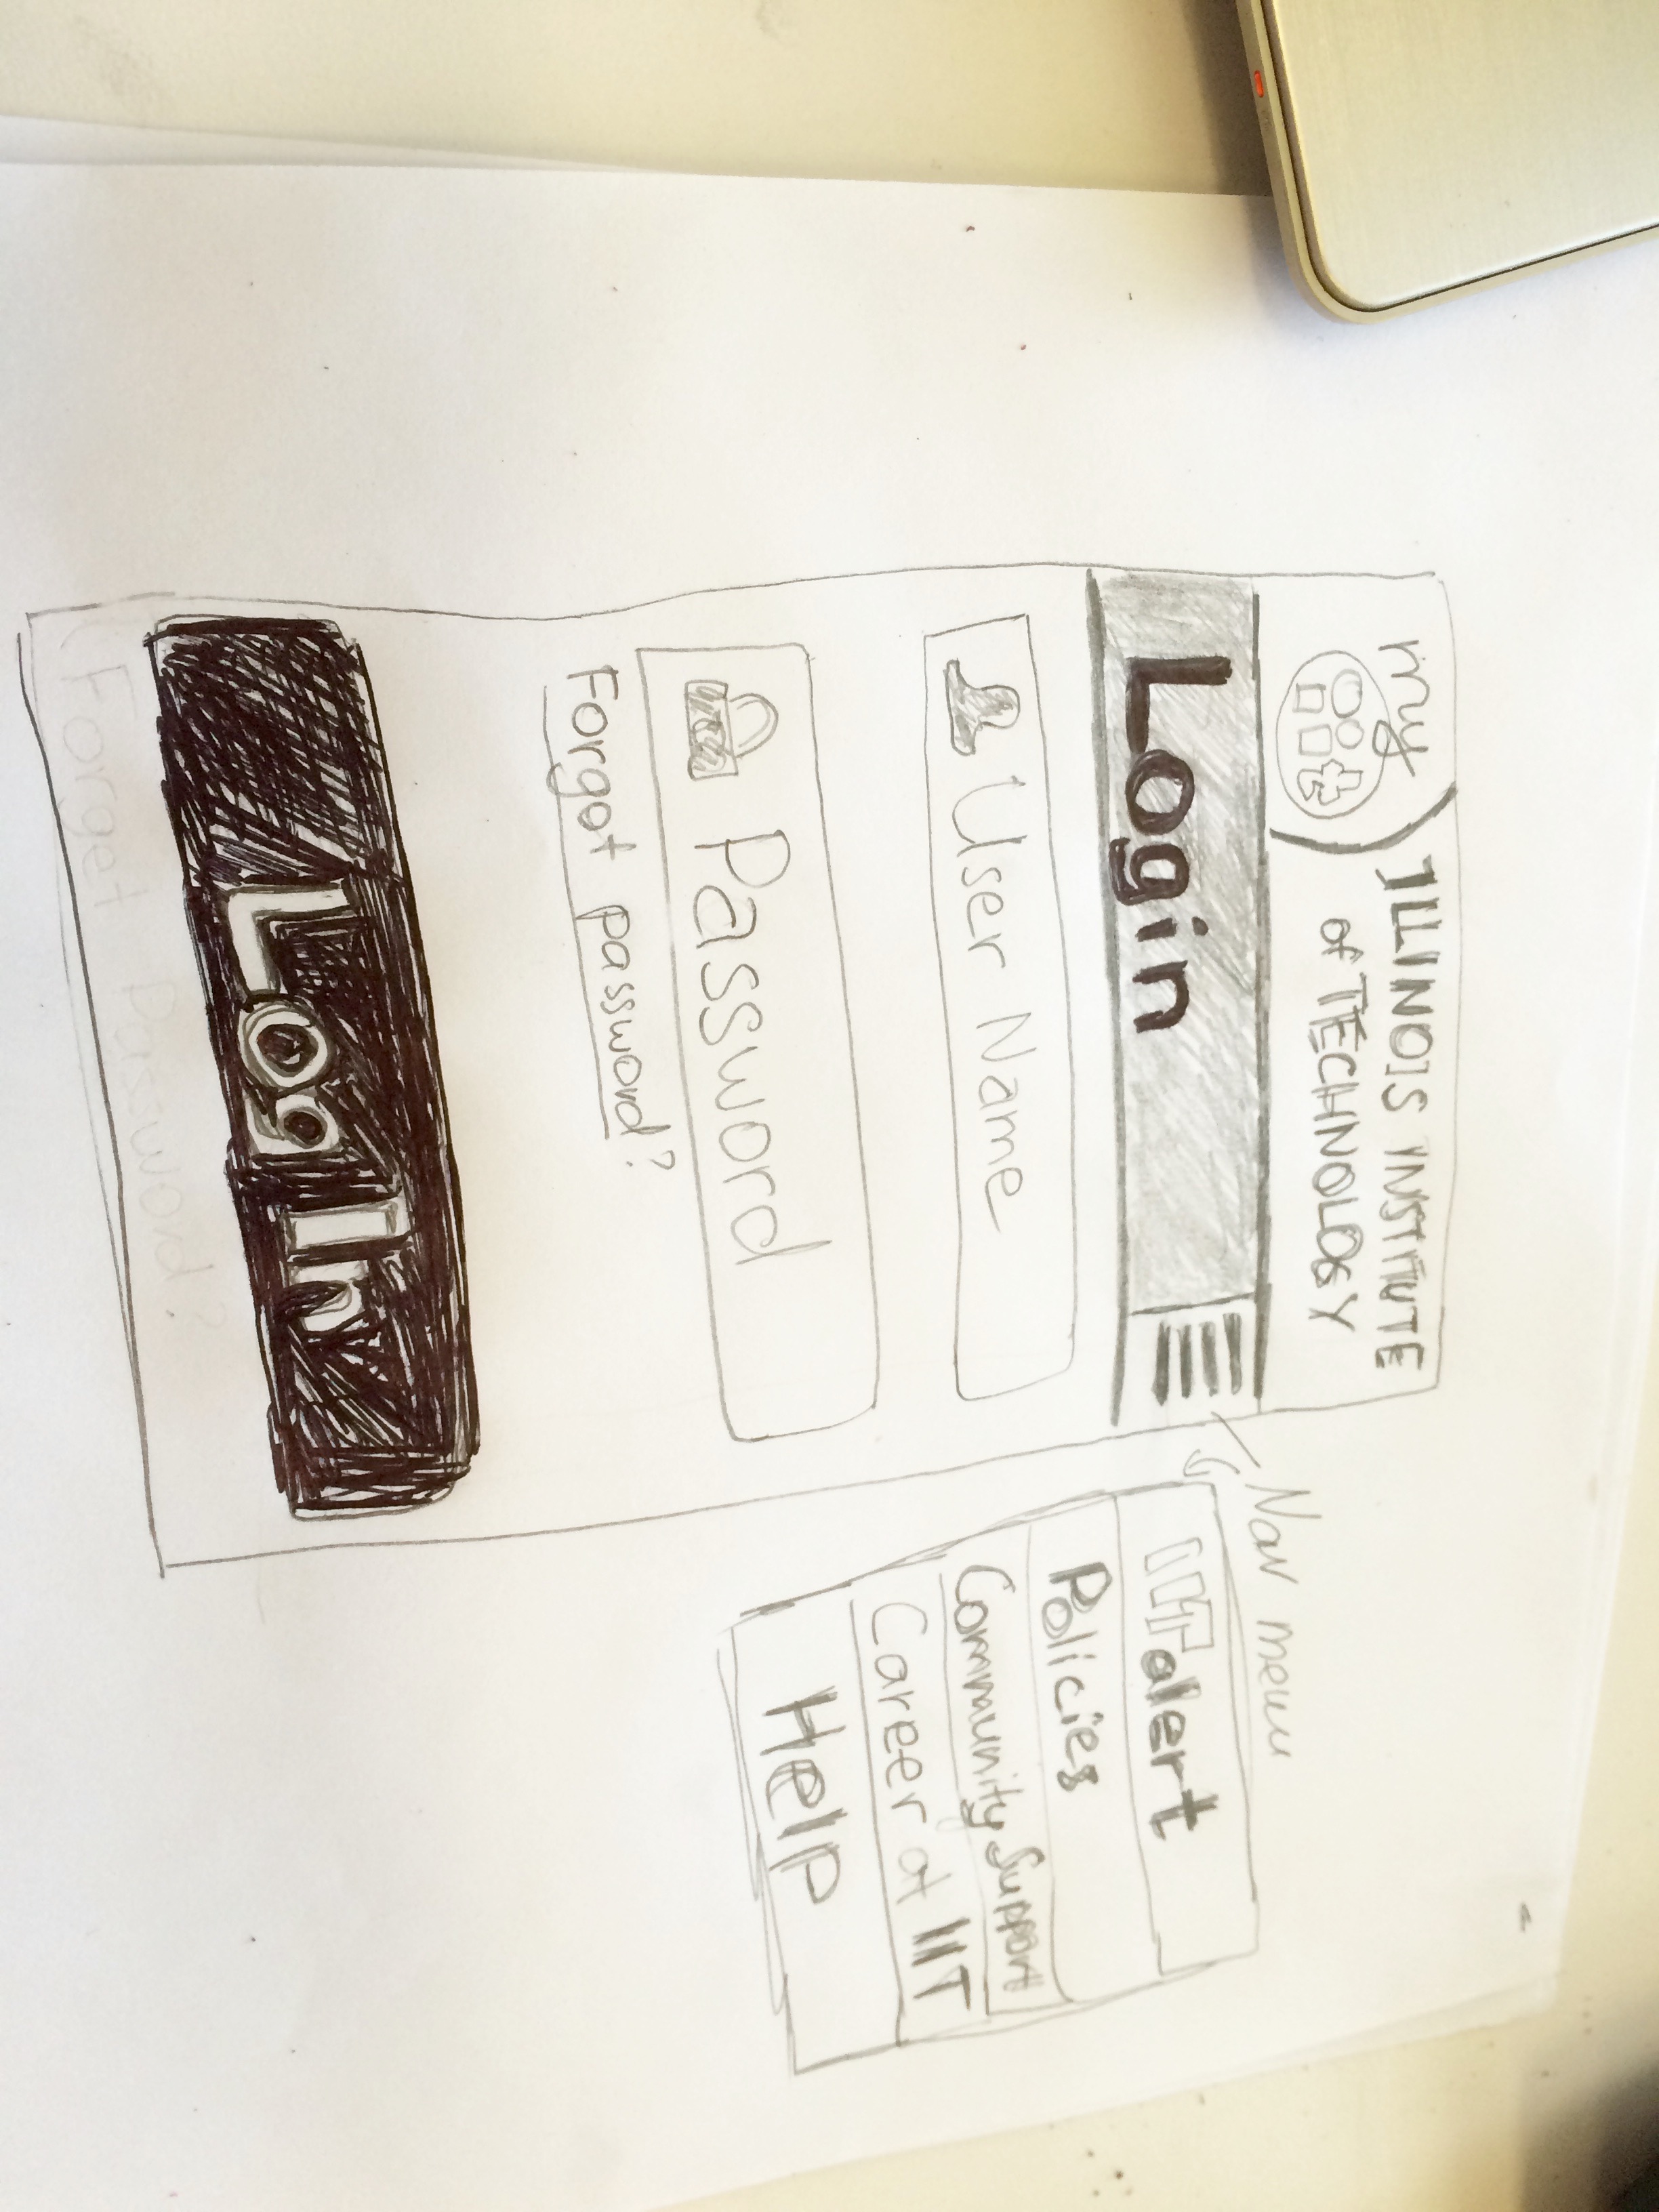 my
ILLINOIS INSTITUTE
of TECHNOLOGY
Login
User Name
Password
Forgot password?
LogIn
Forget password?
Nav menu
IITalert
Policies
Community Support
Career at IIT
Help